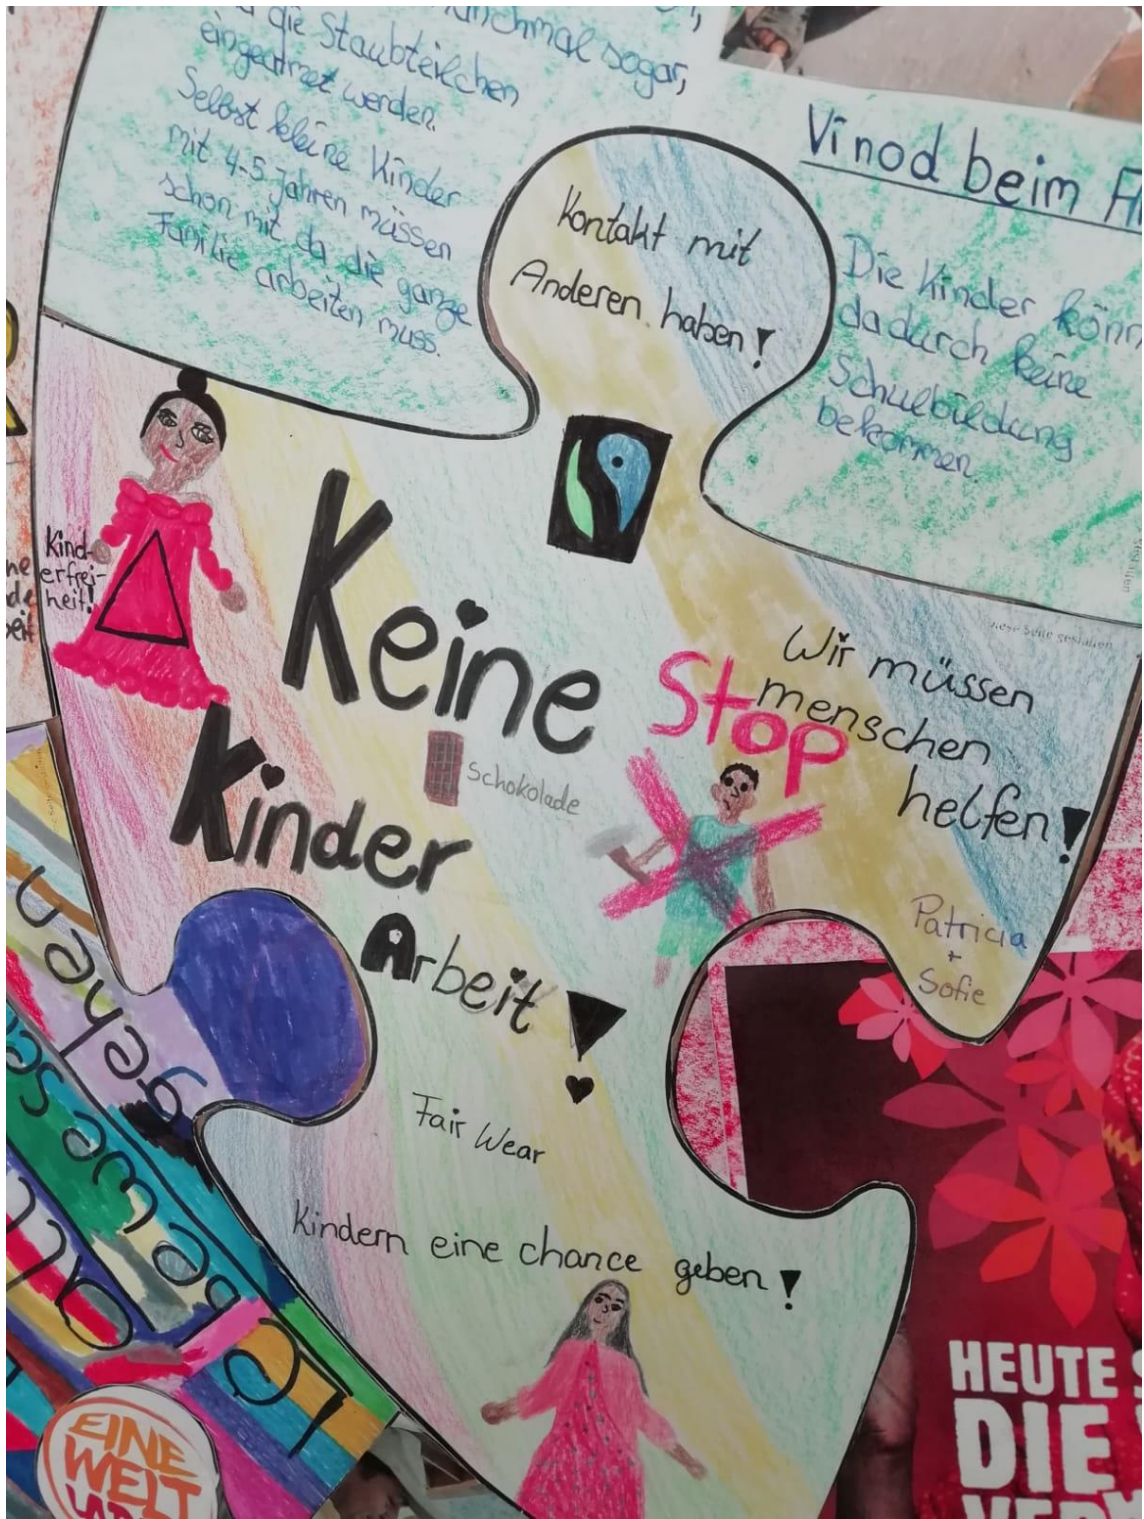 die Staubteilchen
manchmal sogar,
eingeatmet werden.
Selbst kleine Kinder
mit 4-5 Jahren müssen
schon mit da die ganze
Familie arbeiten muss.
Vinod beim
Die Kinder könn
dadurch keine
Schulbildung
bekommen.
Kontakt mit
Anderen haben!
Kind-
erfrei-
heit!
Keine
Kinder
Arbeit!
Schokolade
Stop
Wir müssen
menschen
helfen!
Patricia
+
Sofie
Fair Wear
Kindern eine chance geben!
gehen
EINE
WELT
HEUTE
DIE